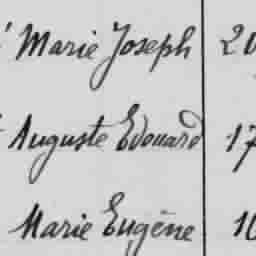 Marie Joseph 20
Auguste Edouard 17
Marie Eugène